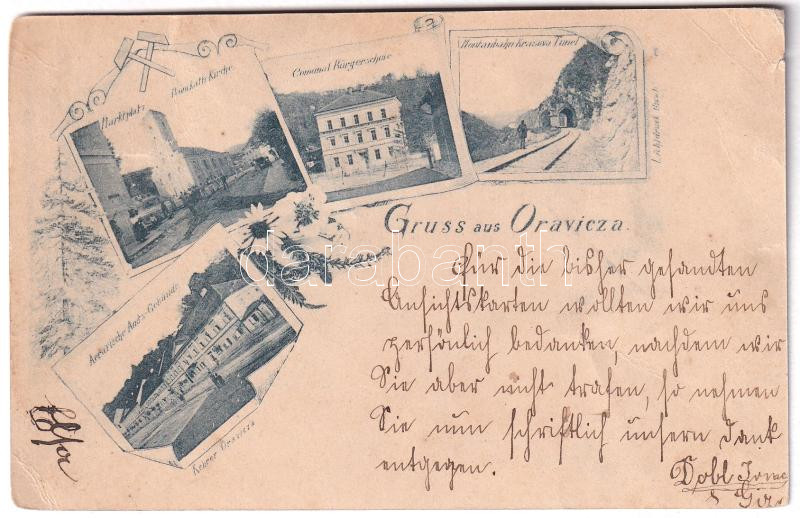 Marktplatz
Röm. kath. Kirche
Comunal Bürgerschule
Montanbahn Krassova Tunel
Gruss aus Oravicza.
Für die bisher gesandten
Ansichtskarten wollten wir uns
persönlich bedanken, nachdem wir
Sie aber nicht trafen, so nehmen
Sie nun schriftlich unsern Dank
entgegen.
Dobl
Aerarische Amts-Gebäude
Kehrer Oravicza
darabanth